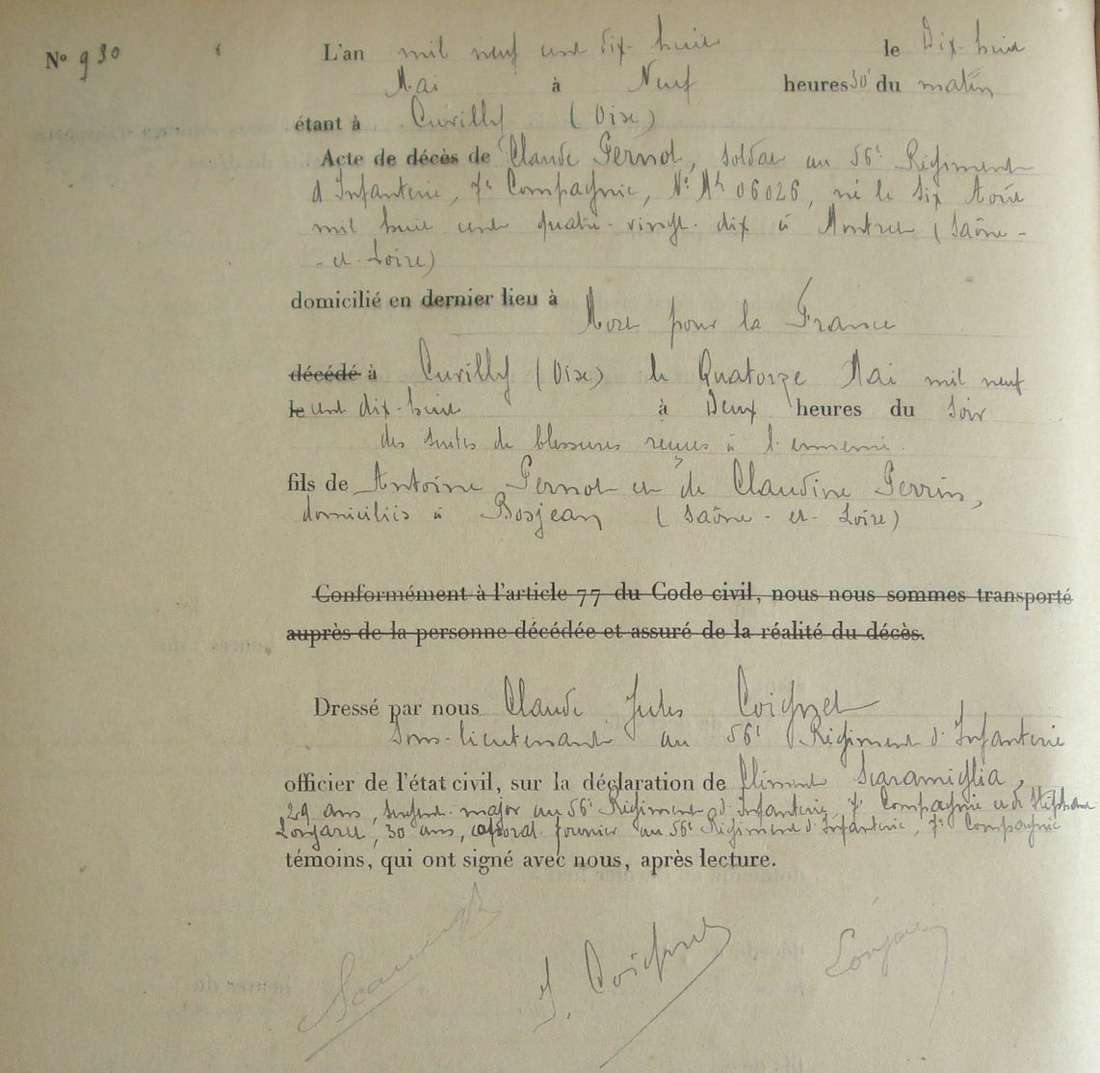 N° 930
L'an mil neuf cent dix-huit le Dix-huit
Mai à Neuf heures 30' du matin
étant à Cuvilly (Oise)
Acte de décès de Claude Pernot, soldat au 56e Régiment
d'Infanterie, 7e Compagnie, N° Mle 06026, né le six Août
mil huit cent quatre-vingt-dix à Montret (Saône-
-et-Loire)
domicilié en dernier lieu à
Mort pour la France
décédé à Cuvilly (Oise) le Quatorze Mai mil neuf
le cent dix-huit à Deux heures du soir
des suites de blessures reçues à l'ennemi.
fils de Antoine Pernot et de Claudine Perrin,
domiciliés à Bosjean (Saône-et-Loire)
Conformément à l'article 77 du Code civil, nous nous sommes transporté
auprès de la personne décédée et assuré de la réalité du décès.
Dressé par nous Claude Jules
Sous-lieutenant au 56e Régiment d'Infanterie
officier de l'état civil, sur la déclaration de Clément Scaramiglia,
29 ans, sergent-major au 56e Régiment d'Infanterie, 7e Compagnie et de Stéphane
30 ans, caporal fourrier au 56e Régiment d'Infanterie, 7e Compagnie
témoins, qui ont signé avec nous, après lecture.